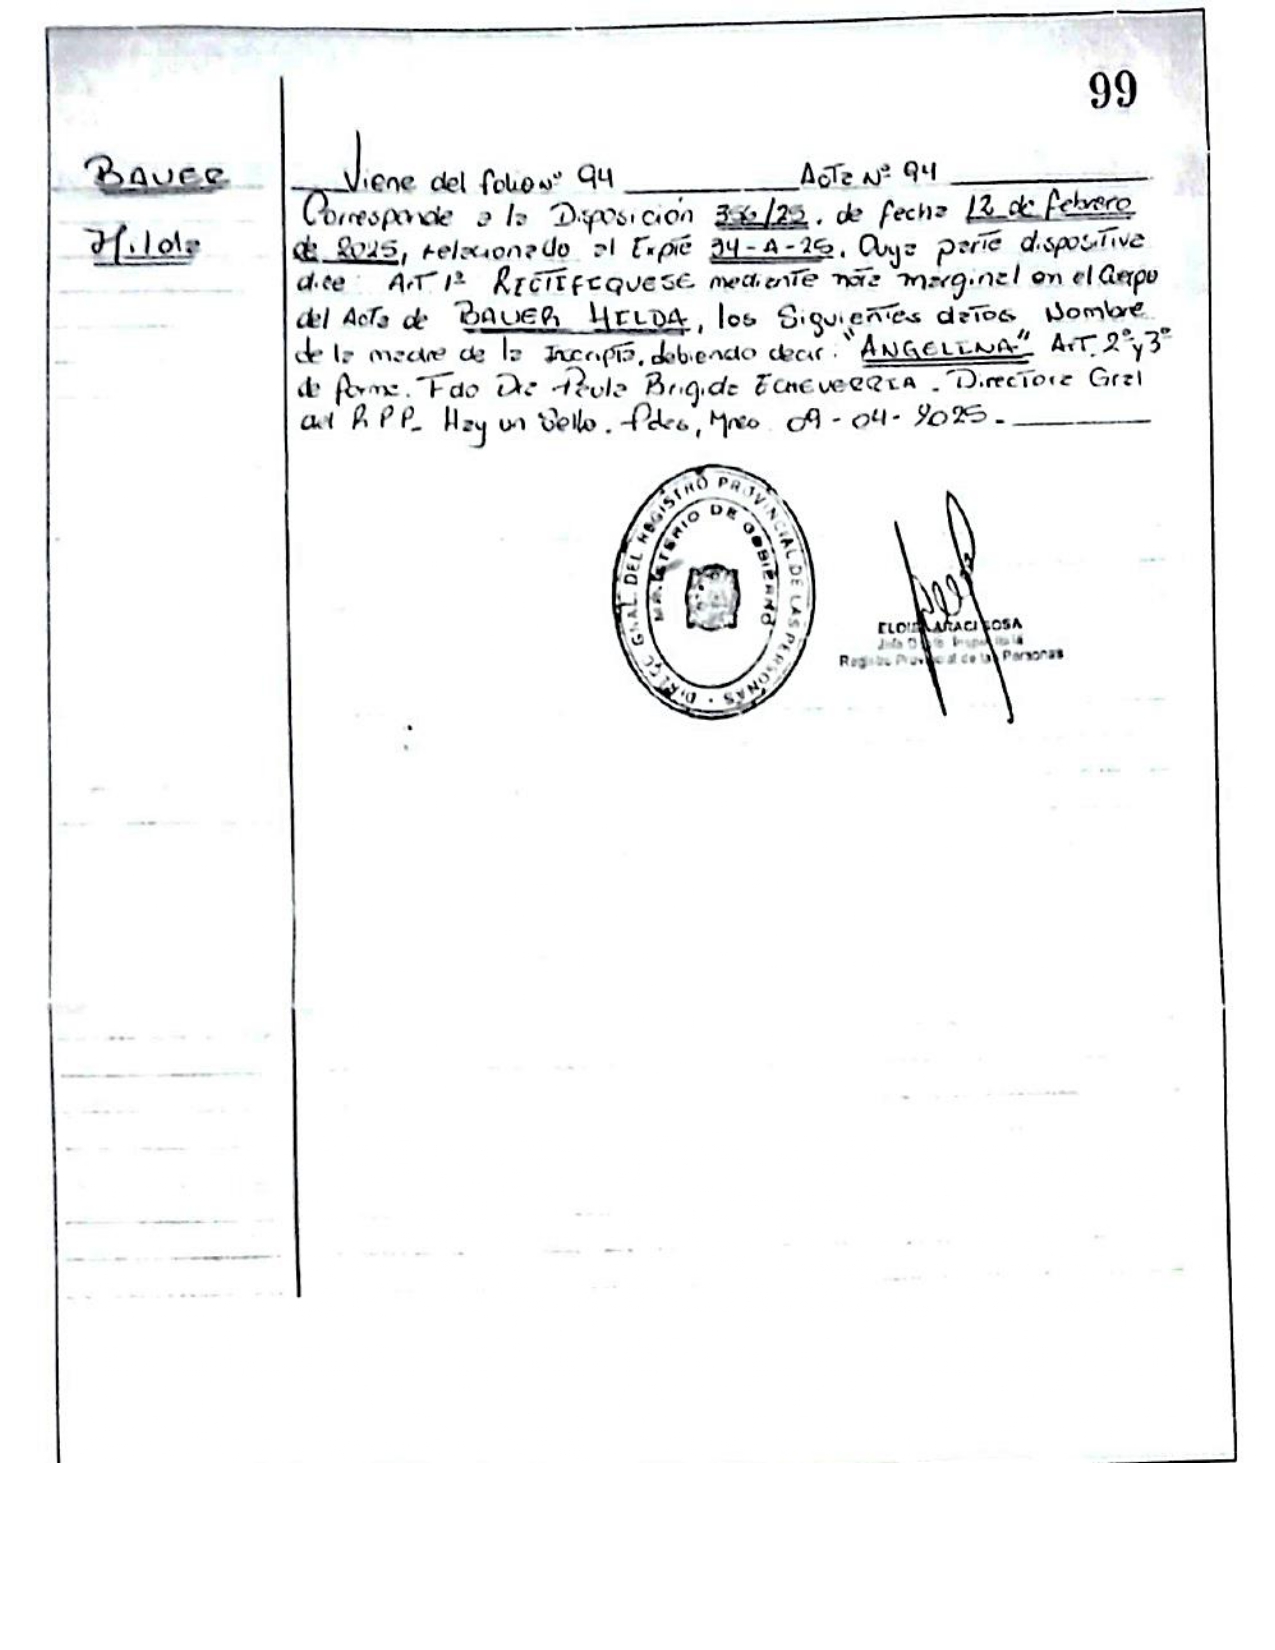 99
BAUER
Hilda
Viene del folio Nº 94 Acta Nº 94
Corresponde a la Disposición /25. de fecha 12 de febrero
de 2025, relacionado al Expte 94-A-25. Cuya parte dispositiva
dice: Art 1º RECTIFIQUESE mediante nota marginal en el Cuerpo
del Acta de BAUER HILDA, los Siguientes datos Nombre
de la madre de la Inscripta, debiendo decir: "ANGELINA" Art. 2º y 3º
de forma. Fdo Dra Paula Brigida ECHEVERRIA - Directora Gral
del R.P.P. Hay un Sello. Pdas, Mnes 09-04-2025.-
DIRECC GRAL. DEL REGISTRO PROVINCIAL DE LAS PERSONAS
MINISTERIO DE GOBIERNO
ARACI SOSA
Registro Provincial de las Personas